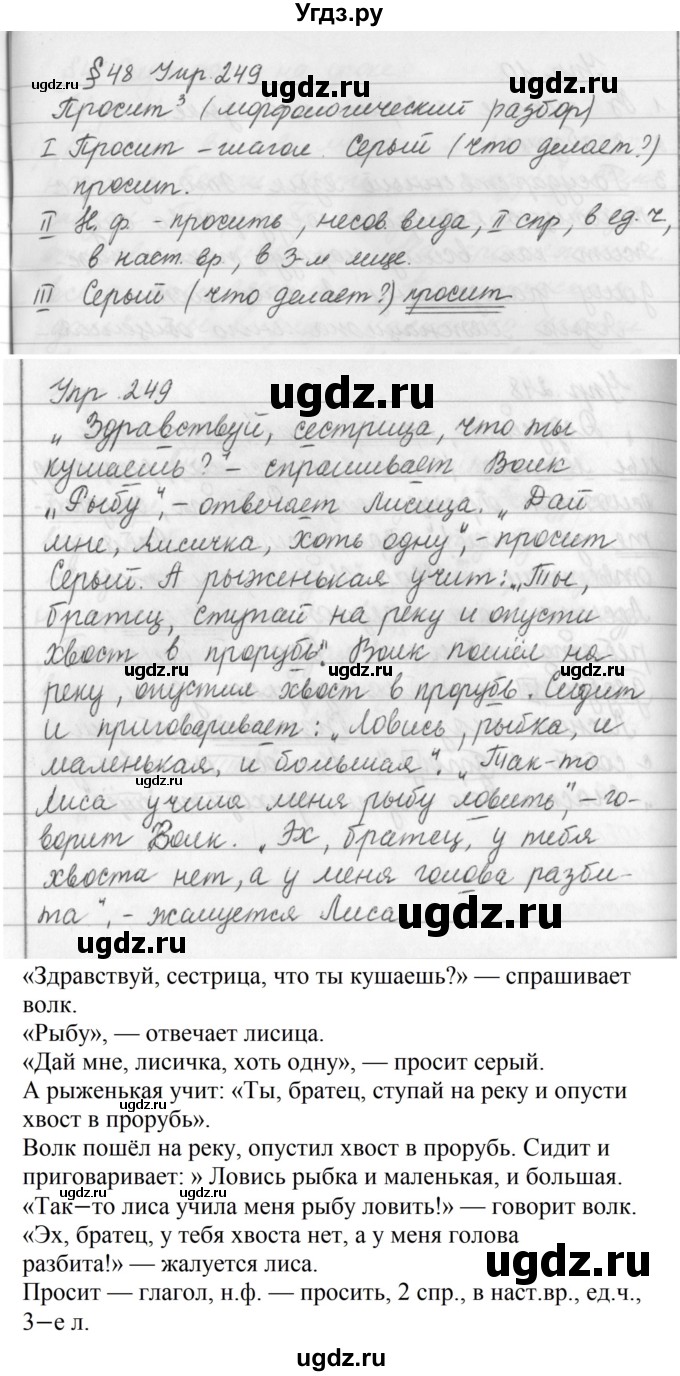 Угдз.ру
§48 Упр. 249
Просит³ (морфологический разбор)
I Просит – глагол. Серый (что делает?)
просит.
II Н. ф. – просить, несов. вида, II спр., в ед. ч.,
в наст. вр., в 3-м лице.
III Серый (что делает?) просит
Упр. 249
ugdz.ru
„Здравствуй, сестрица, что ты
кушаешь?" – спрашивает Волк
„Рыбу", – отвечает лисица. „Дай
ugdz.ru
мне, Лисичка, хоть одну", – просит
Серый. А рыженькая учит: „Ты,
братец, ступай на реку и опусти
хвост в прорубь". Волк пошёл на
ugdz.ru
ugdz.ru
реку, опустил хвост в прорубь. Сидит
и приговаривает: „Ловись, рыбка, и
маленькая, и большая". „Так-то
ugdz.ru
Лиса учила меня рыбу ловить", – го-
ворит Волк. „Эх, братец, у тебя
хвоста нет, а у меня голова разби-
та", – жалуется Лиса
ugdz.ru
ugdz.ru
«Здравствуй, сестрица, что ты кушаешь?» — спрашивает
волк.
«Рыбу», — отвечает лисица.
«Дай мне, лисичка, хоть одну», — просит серый.
А рыженькая учит: «Ты, братец, ступай на реку и опусти
ugdz.ru
хвост в прорубь».
Волк пошёл на реку, опустил хвост в прорубь. Сидит и
приговаривает: » Ловись рыбка и маленькая, и большая.
ugdz.ru
ugdz.ru
«Так−то лиса учила меня рыбу ловить!» — говорит волк.
«Эх, братец, у тебя хвоста нет, а у меня голова
разбита!» — жалуется лиса.
ugdz.ru
Просит — глагол, н.ф. — просить, 2 спр., в наст.вр., ед.ч.,
3−е л.
ugdz.ru